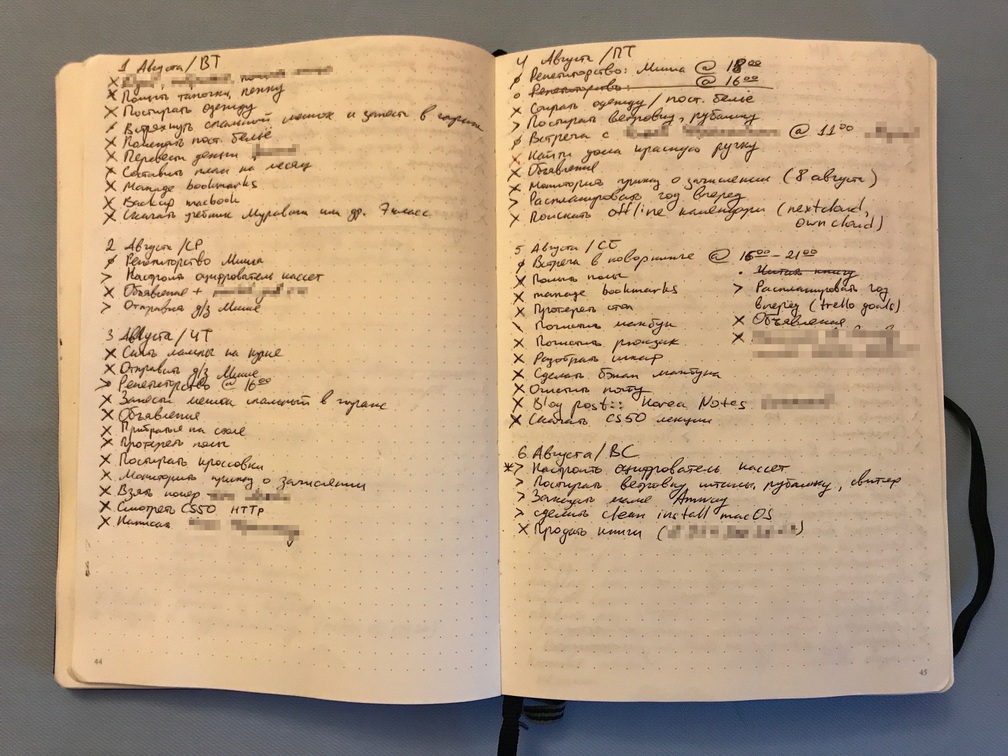 1 Августа/ВТ
× Помыть тапочки, пенку
× Постирать одежду
Встряхнуть спальный мешок и занести в гараж
× Поискать пост. бельё
× Перевести деньги
× Составить план на месяц
× Manage bookmarks
× Backup macbook
× Скачать учебник Муравина или др. 7 класс
2 Августа/СР
Репетиторство Миша
> Настроить оцифрователь кассет
× Объявление +
> Отправить д/з Мише
3 Августа/ЧТ
× Снять лампы на кухне
× Отправить д/з Мише
> Репетиторство @ 16⁰⁰
× Занести мешок спальный в гараж
× Объявления
× Прибраться на столе
× Протереть полы
× Постирать кроссовки
× Мониторить приказ о зачислении
× Взять номер
× Смотреть CS50 HTTP
× Написать
44
4 Августа/ПТ
Репетиторство: Миша @ 18⁰⁰
Репетиторство: @ 16⁰⁰
× Собирать одежду/пост. бельё
> Постирать ветровку, рубашку
Встреча с @ 11⁰⁰
× Найти дома красную ручку
× Объявления
× Мониторить приказ о зачислении (8 августа)
> Распланировать год вперёд
× Поискать offline календари (nextcloud,
owncloud)
5 Августа/СБ
Встреча в коворкинге @ 16⁰⁰-21⁰⁰
× Помыть полы
× manage bookmarks
× Протереть стол
Почистить макбук
× Почистить рюкзак
× Разобрать шкаф
× Сделать бэкап макбука
× Очистить почту
× Blog post:: Korea Notes
× Скачать CS50 лекции
• Читать книгу
> Распланировать год
вперёд (trello goals)
× Объявления
×
6 Августа/ВС
*> Настроить оцифрователь кассет
> Постирать ветровку, штаны, рубашку, свитер
> Заказать маме Amway
> сделать clean install macOS
× Продать книги (
45